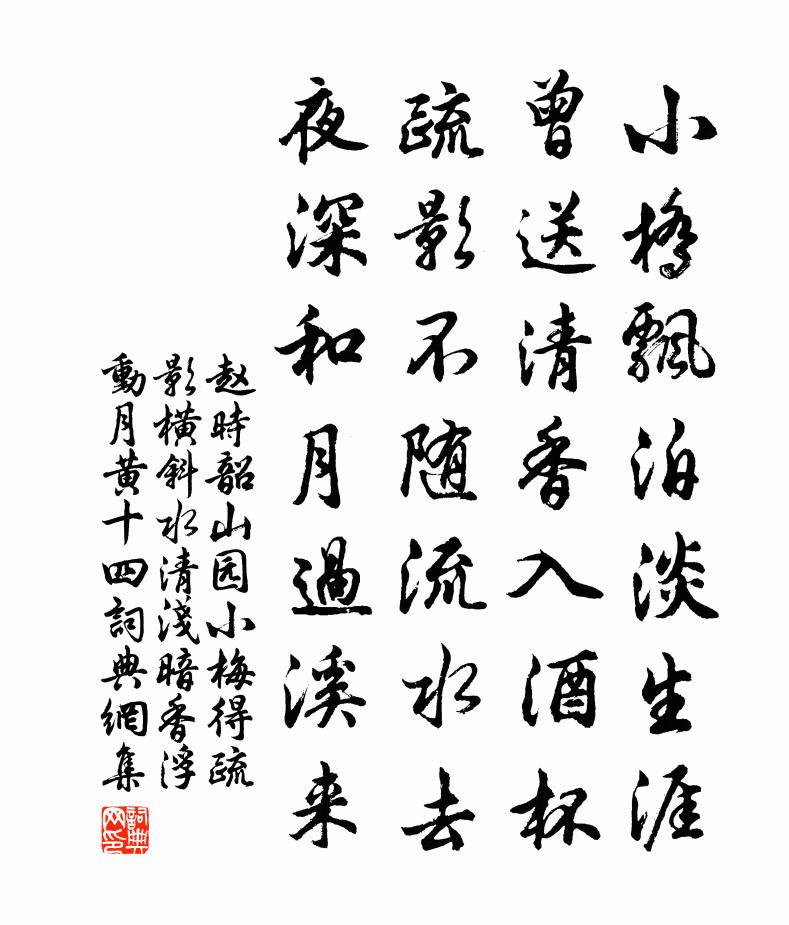 小橋飄泊淡生涯
曾送清香入酒杯
疏影不随流水去
夜深和月過溪来
赵時韶山园小梅得疏
影橫斜水清淺暗香浮
動月黄十四詞典網集
詞典网印